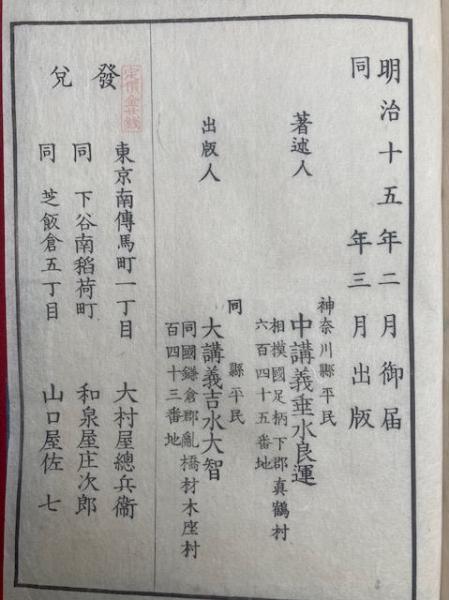 明治十五年二月御届
同　年三月出版
著述人
神奈川縣平民
中講義垂水良運
相摸國足柄下郡真鶴村
六百四十五番地
出版人
同　縣平民
大講義吉水大智
同國鎌倉郡亂橋材木座村
百四十三番地
發兌
東京南傳馬町一丁目　大村屋總兵衞
同　下谷南稻荷町　和泉屋庄次郎
同　芝飯倉五丁目　山口屋佐七